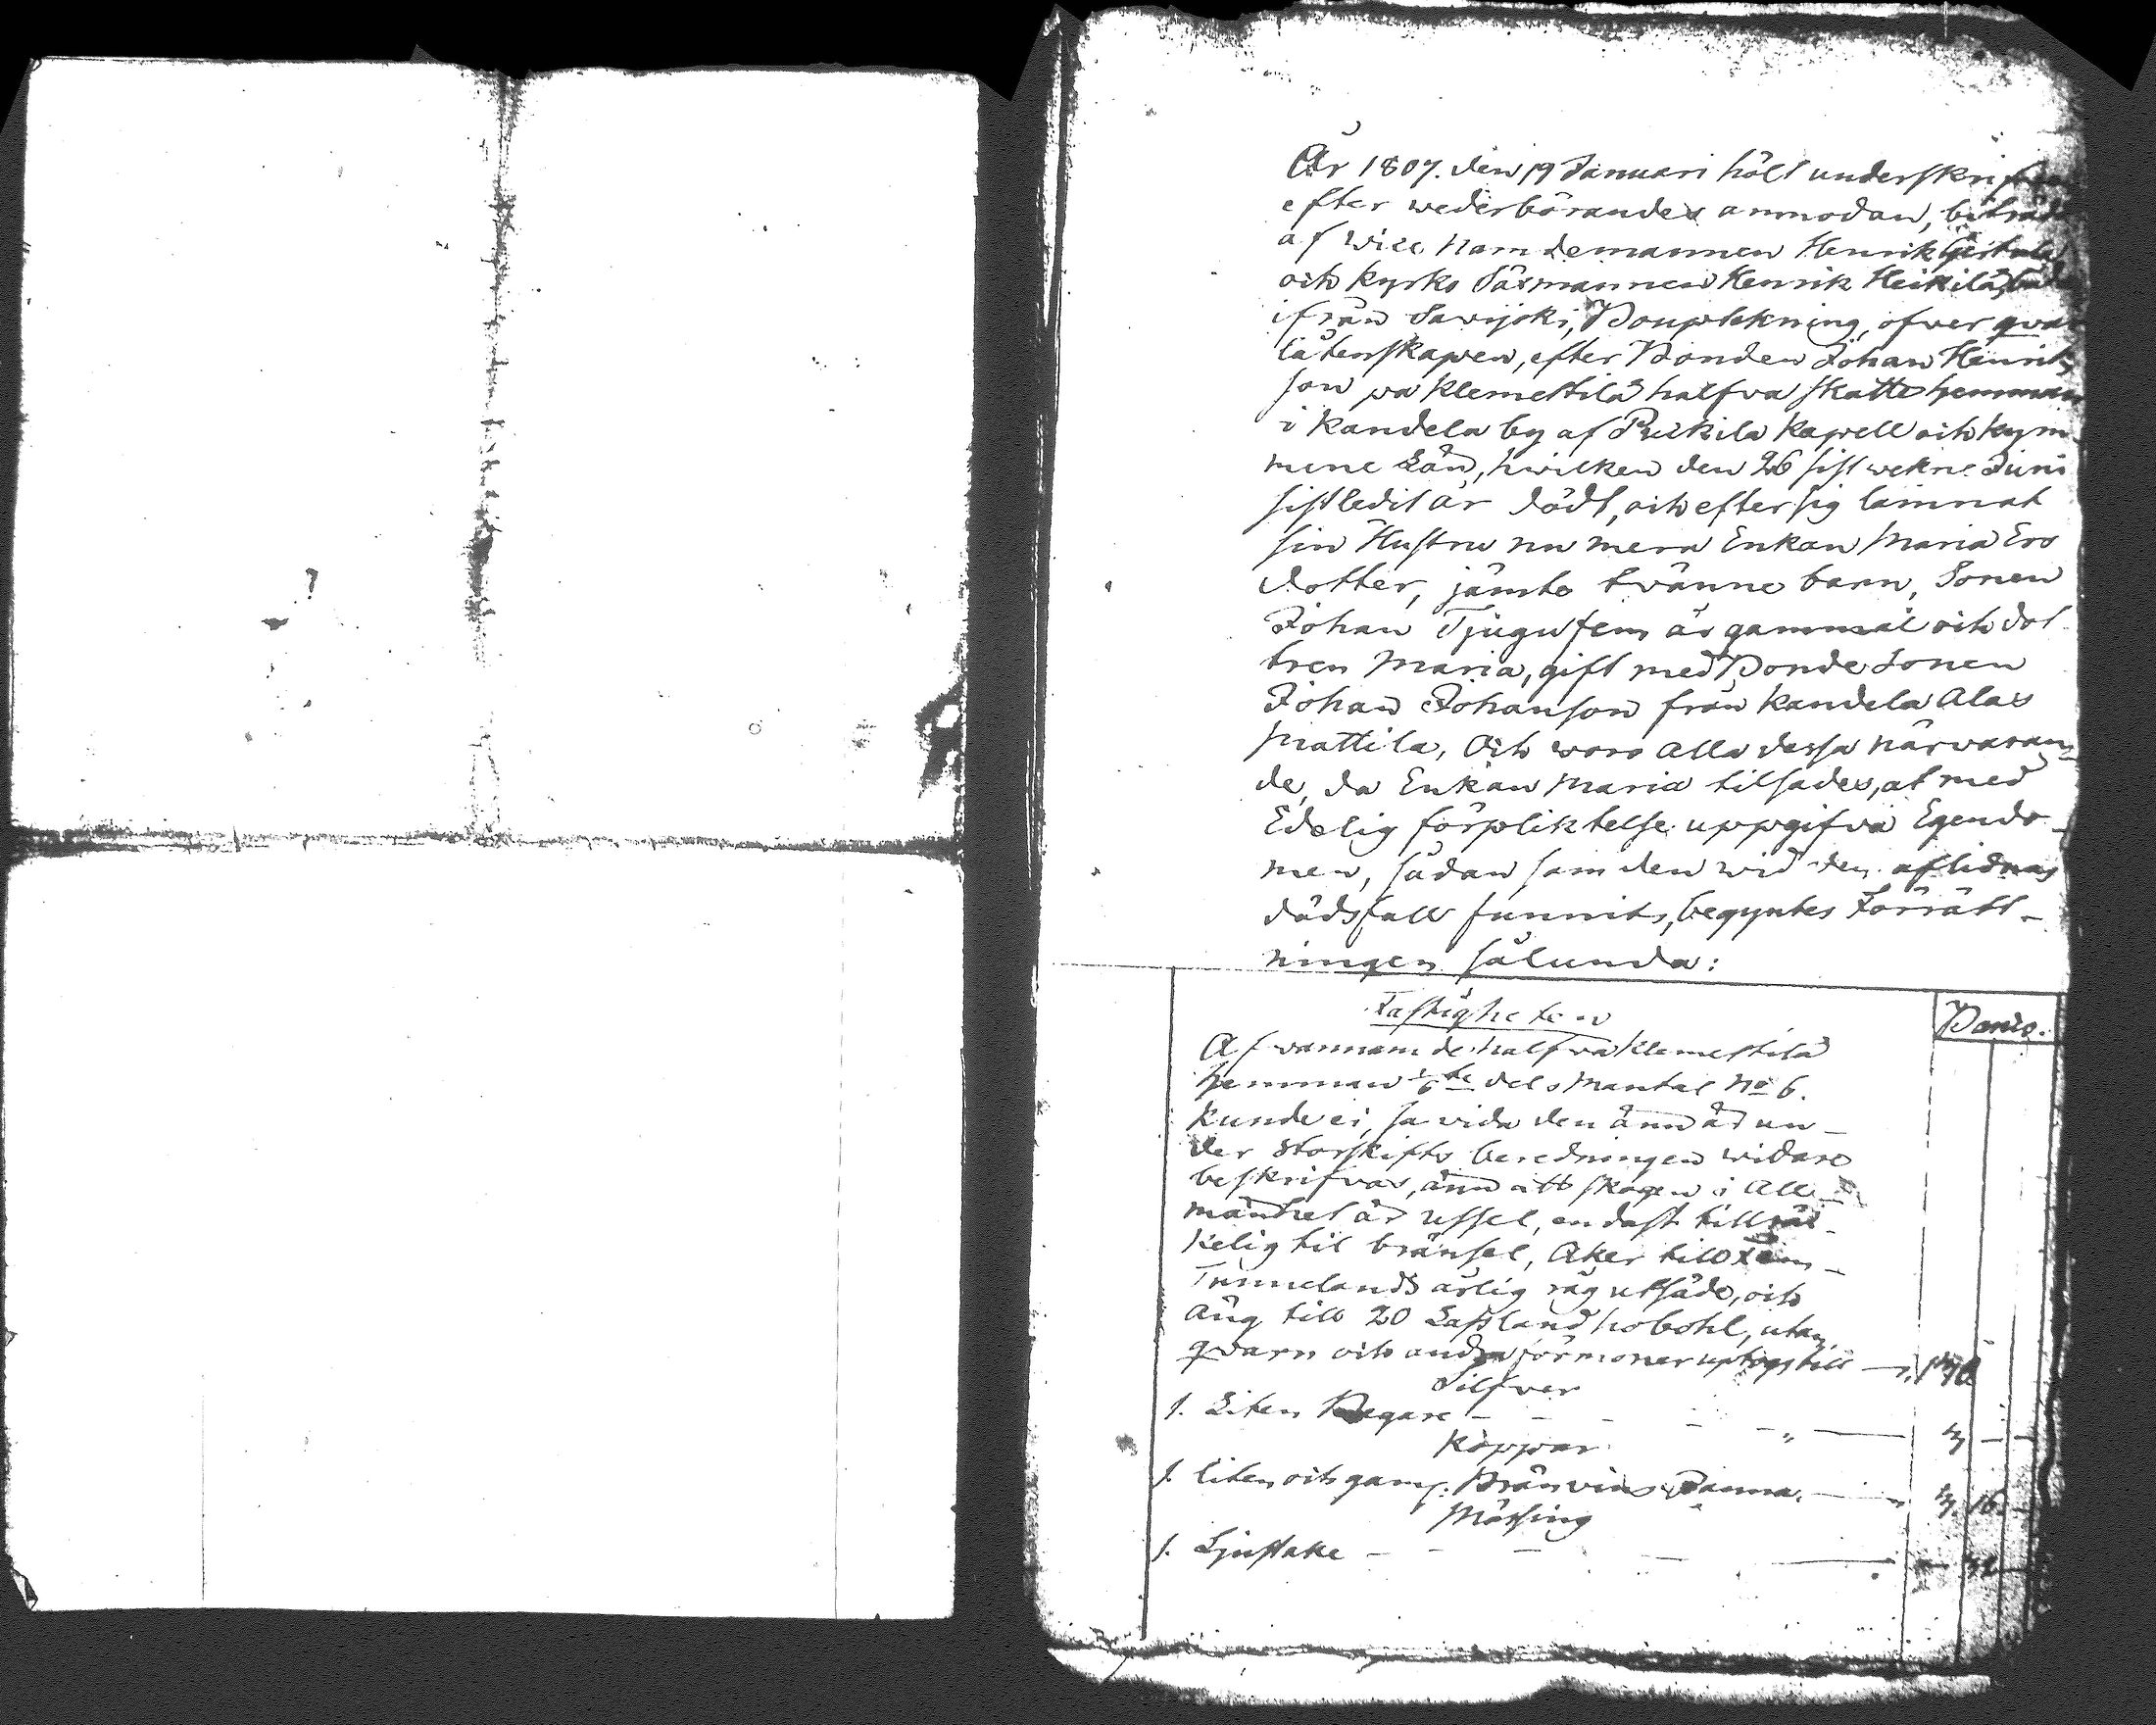 År 1807. den 19 Januari hölt underskrifven
efter wederbörandes anmodan, biträd
af Wice Nämdemannen Henrik
och kyrko Säxmannen Henrik Heikilä, både
ifrån Savijoki, Bouptekning, öfver qvar
låtenskapen, efter Bonden Johan Henrik
son på Klemettilä halfva skatte hemman
i Kandela by af Puckila Kapell och kym
mene Län, hwilken den 26 sistwekne Juni
sistledit år dödt, och efter sig lämnat
sin Hustru nu mera Enkan Maria Ers
dotter, jämte tvänne barn, Sonen
Johan Tjugufem år gammal och dot
tren Maria, gift med Bonde Sonen
Johan Johanson från Kandela Alas
Mattila, Och woro alla dessa närvaran
de, då Enkan Maria tilsades, at med
Edelig förpliktelse uppgifva Egendo-
men, sådan som den wid den aflidnas
dödsfall funnits, begyntes Förrätt-
ningen sålunda:
Fastigheten
Banco.
Af vannämde halfva Klemettilä
hemman 1/6te dels Mantal No 6.
kunde ei, så vida den ännu är un-
der Storskifts beredningen widare
beskrifvas, än att skogen i All-
mänhet är ussel, endast tillräc-
kelig til bränsel, Åker till Fem
Tunnelands årlig råg utsäde, och
Äng till 20 Lassland höbohl, utan
qvarn och andra förmoner uptogs till
Silfver
1. Liten Begare
Koppar
1. liten och gam: Bränvins Panna. 16
Mässing
1. Ljustake